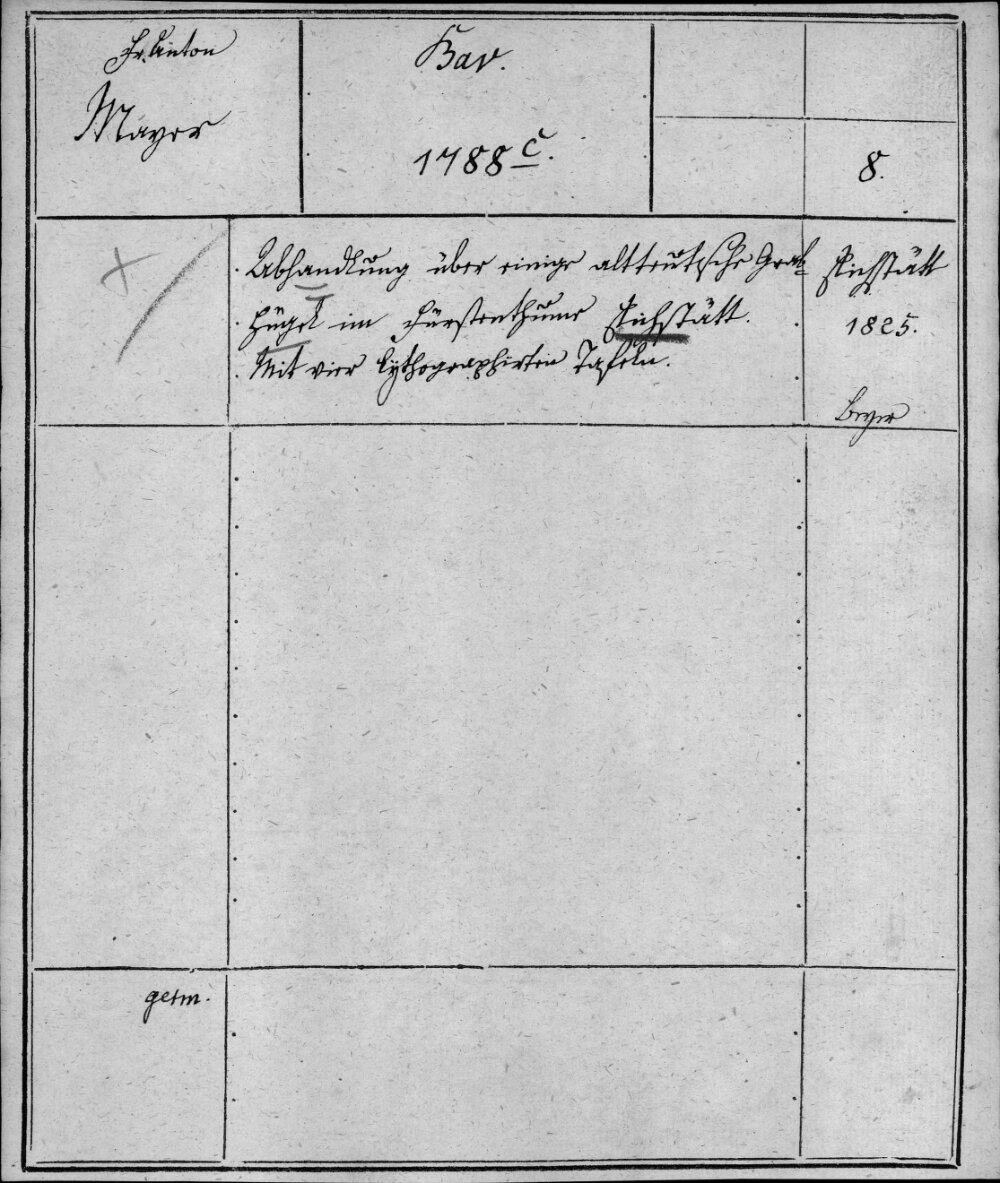 Fr. Anton
Mayer
Bav.
1788 c.
8.
Abhandlung über einige altteutsche Grab=
hügel im Fürstenthume Eichstätt.
Mit vier lythographirten Tafeln.
Eichstätt
1825.
Beyer
germ.